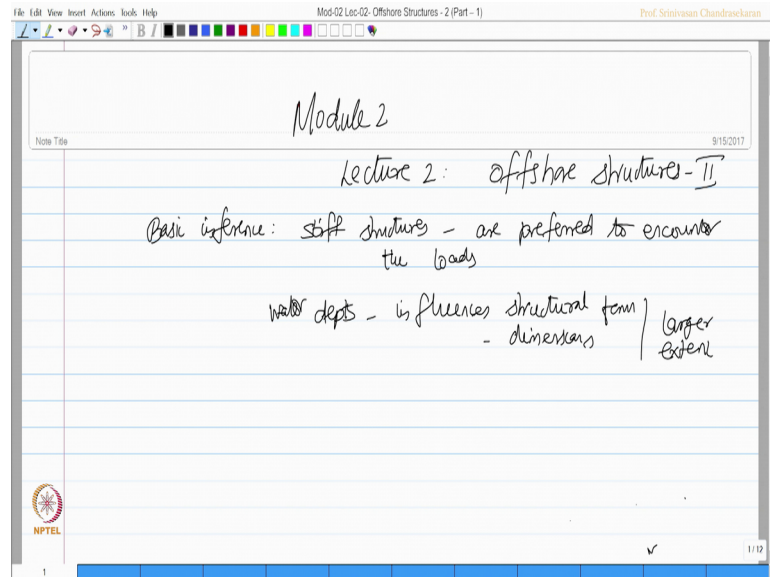 File Edit View Insert Actions Tools Help
Mod-02 Lec-02- Offshore Structures - 2 (Part – 1)
Prof. Srinivasan Chandrasekaran
B I
Module 2
Note Title
9/15/2017
Lecture 2: Offshore structures - II
Basic inference: stiff structures - are preferred to encounter
the loads
water depts - influences structural form
- dimensions
larger
extent
NPTEL
1/12
1